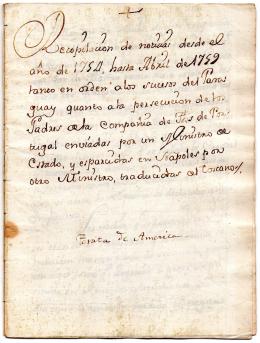 Recopilacion de noticias desde el
año de 1754 hasta Abril de 1759
tanto en orden a los sucesos del Para
guay quanto a la persecucion de los
Padres de la Compañia de Jhs de Por
tugal enviadas por un Ministro de
Estado, y esparcidas en Napoles por
otro Ministro, traducidas del toscano
trata de America